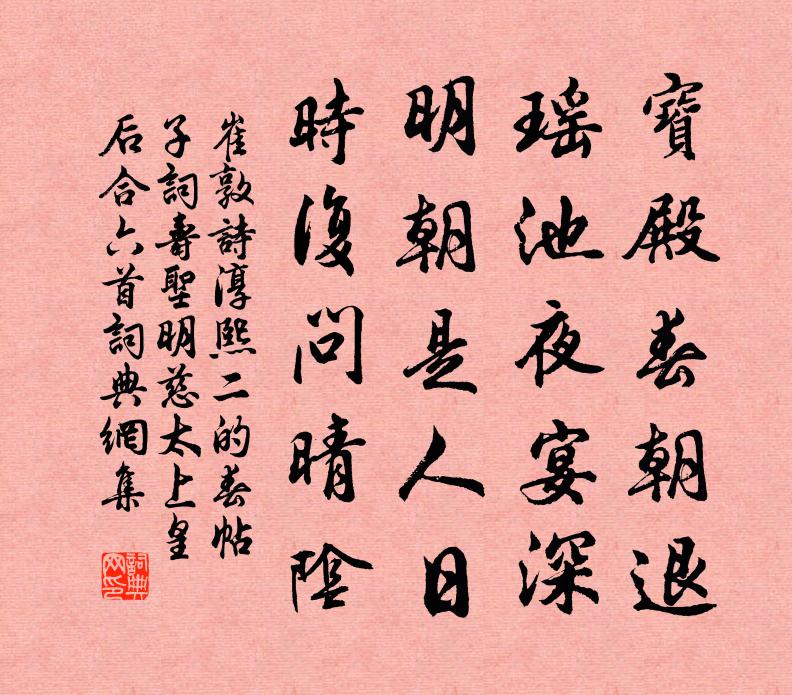 寶殿春朝退
瑤池夜宴深
明朝是人日
時復問晴陰
崔敦詩淳熙二的春帖
子詞壽聖明慈太上皇
后合六首詞典網集
詞典網印